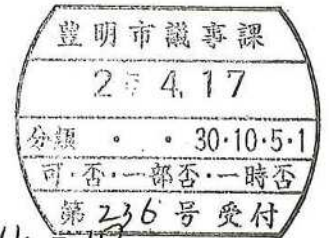 豊明市議事課
2 4.17
分類 ・ ・ 30・10・5・1
可・否・一部否・一時否
第236号受付